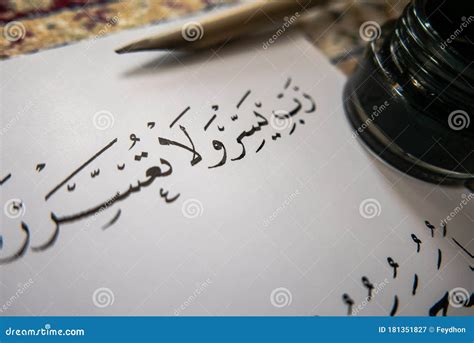 رَبِّ يَسِّرْ وَلَا تُعَسِّرْ
dreamstime.com
ID 181351827 © Feydhon